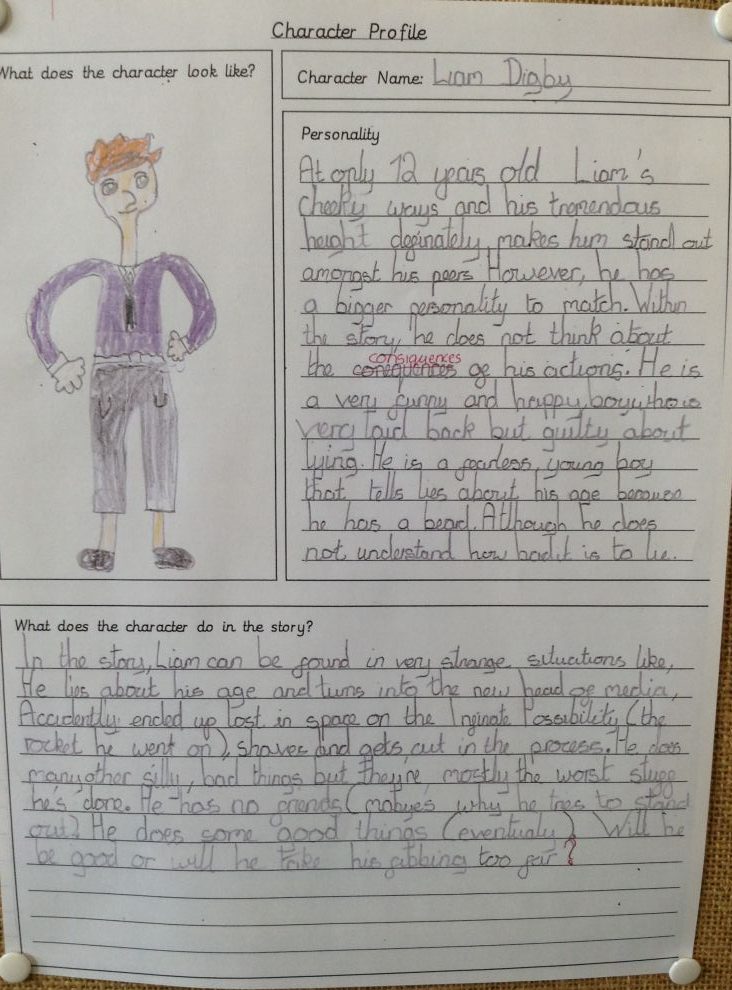 Character Profile
What does the character look like?
Character Name: Liam Digby
Personality
At only 12 years old Liam's
cheeky ways and his tremendous
height definately makes him stand out
amongst his peers However, he has
a bigger personality to match. Within
the story, he does not think about
consiquences
the consequences of his actions. He is
a very funny and happy boy who is
very laid back but guilty about
lying. He is a fearless, young boy
that tells lies about his age because
he has a beard. Although he does
not understand how bad it is to lie.
What does the character do in the story?
In the story, Liam can be found in very strange situations like,
He lies about his age and turns into the new head of media,
Accidently ended up lost in space on the Infinate Possibility (the
rocket he went on), shaves and gets cut in the process. He does
many other silly, bad things but they're mostly the worst stuff
he's done. He has no friends (mabyes why he tries to stand
out). He does some good things (eventualy) Will he
be good or will he take his fibbing too far?